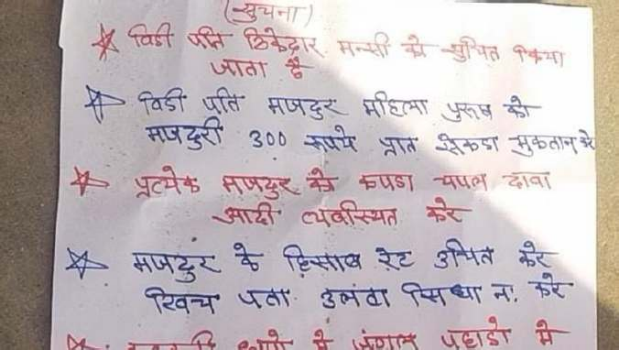 (सुचना)
☆ विडी पति ठिकेदार मन्सी को सुचित किया
जाता है
☆ विडी पति मजदुर महिला पुरूष को
मजदुरी 300 रूपये प्रात सैकडा भुकतान करे
☆ प्रत्येक मजदुर को कपडा चपल दावा
आदी व्यवस्थित करे
☆ मजदुर के हिसाब रेट उचित करे
खिच पता उलटा सिधा न. करे
मे जंगल पहाडो मे